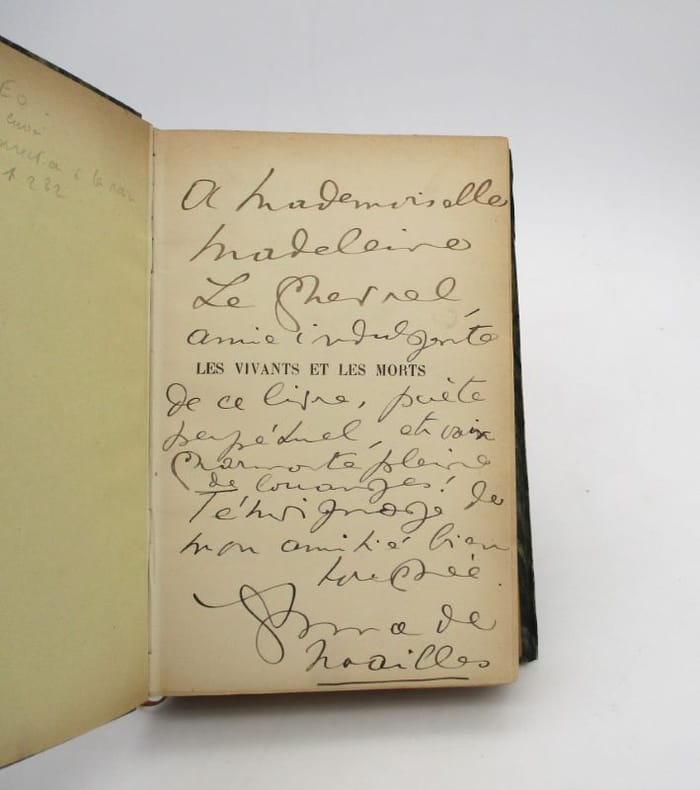 EO
envoi
A Mademoiselle
Madeleine
Le Chevrel,
amie indulgente
LES VIVANTS ET LES MORTS
de ce livre, poète
perpétuel, et voix
charmante pleine
de louanges!
Témoignage de
mon amitié bien
touchée.
Anna de
Noailles